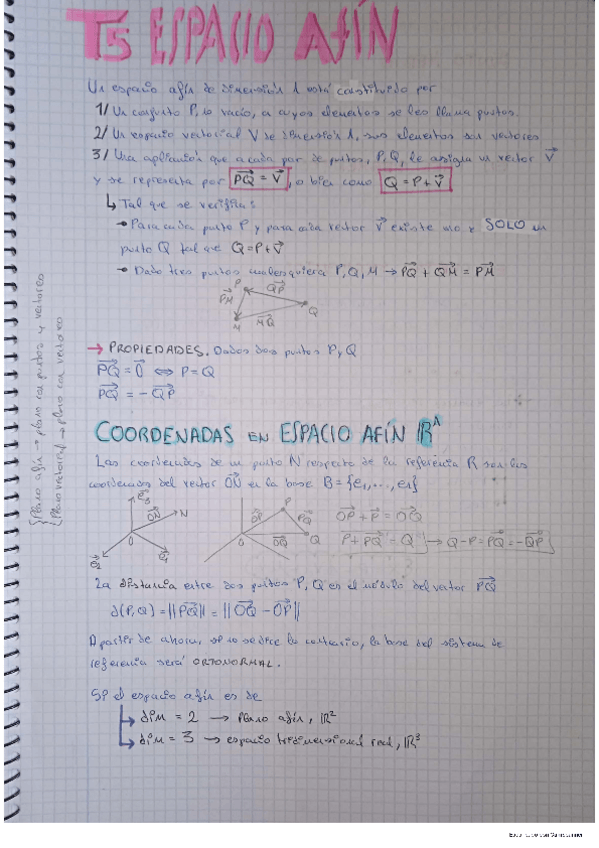 T5 ESPACIO AFÍN
Un espacio afín de dimensión n está constituido por
1/ Un conjunto P, no vacío, a cuyos elementos se les llama puntos.
2/ Un espacio vectorial V de dimensión n, sus elementos son vectores
3/ Una aplicación que a cada par de puntos, P, Q, le asigna un vector V⃗
y se representa por PQ⃗ = V⃗, o bien como Q = P + V⃗
↳ Tal que se verifica:
→ Para cada punto P y para cada vector V⃗ existe uno y SOLO un
punto Q tal que Q = P + V⃗
→ Dado tres puntos cualesquiera P, Q, M → PQ⃗ + QM⃗ = PM⃗
P QP⃗
PM⃗ Q
M MQ⃗
→ PROPIEDADES. Dados dos puntos P y Q
PQ⃗ = 0⃗ ⇔ P = Q
PQ⃗ = - QP⃗
Plano afín → plano con puntos y vectores
Plano vectorial → plano con vectores
COORDENADAS EN ESPACIO AFÍN ℝⁿ
Las coordenadas de un punto N respecto de la referencia R son las
coordenadas del vector ON⃗ en la base B = {e₁, ..., eₙ}
e⃗₃ ON⃗ N O e⃗₂ e⃗₁
P OP⃗ PQ⃗ O OQ⃗ Q
OP⃗ + P⃗ = OQ⃗
P + PQ⃗ = Q → Q - P = PQ⃗ = - QP⃗
La distancia entre dos puntos P, Q es el módulo del vector PQ⃗
d(P,Q) = ||PQ⃗|| = ||OQ⃗ - OP⃗||
A partir de ahora, si no se dice lo contrario, la base del sistema de
referencia será ORTONORMAL.
Si el espacio afín es de
↳ dim = 2 → plano afín, ℝ²
↳ dim = 3 → espacio tridimensional real, ℝ³